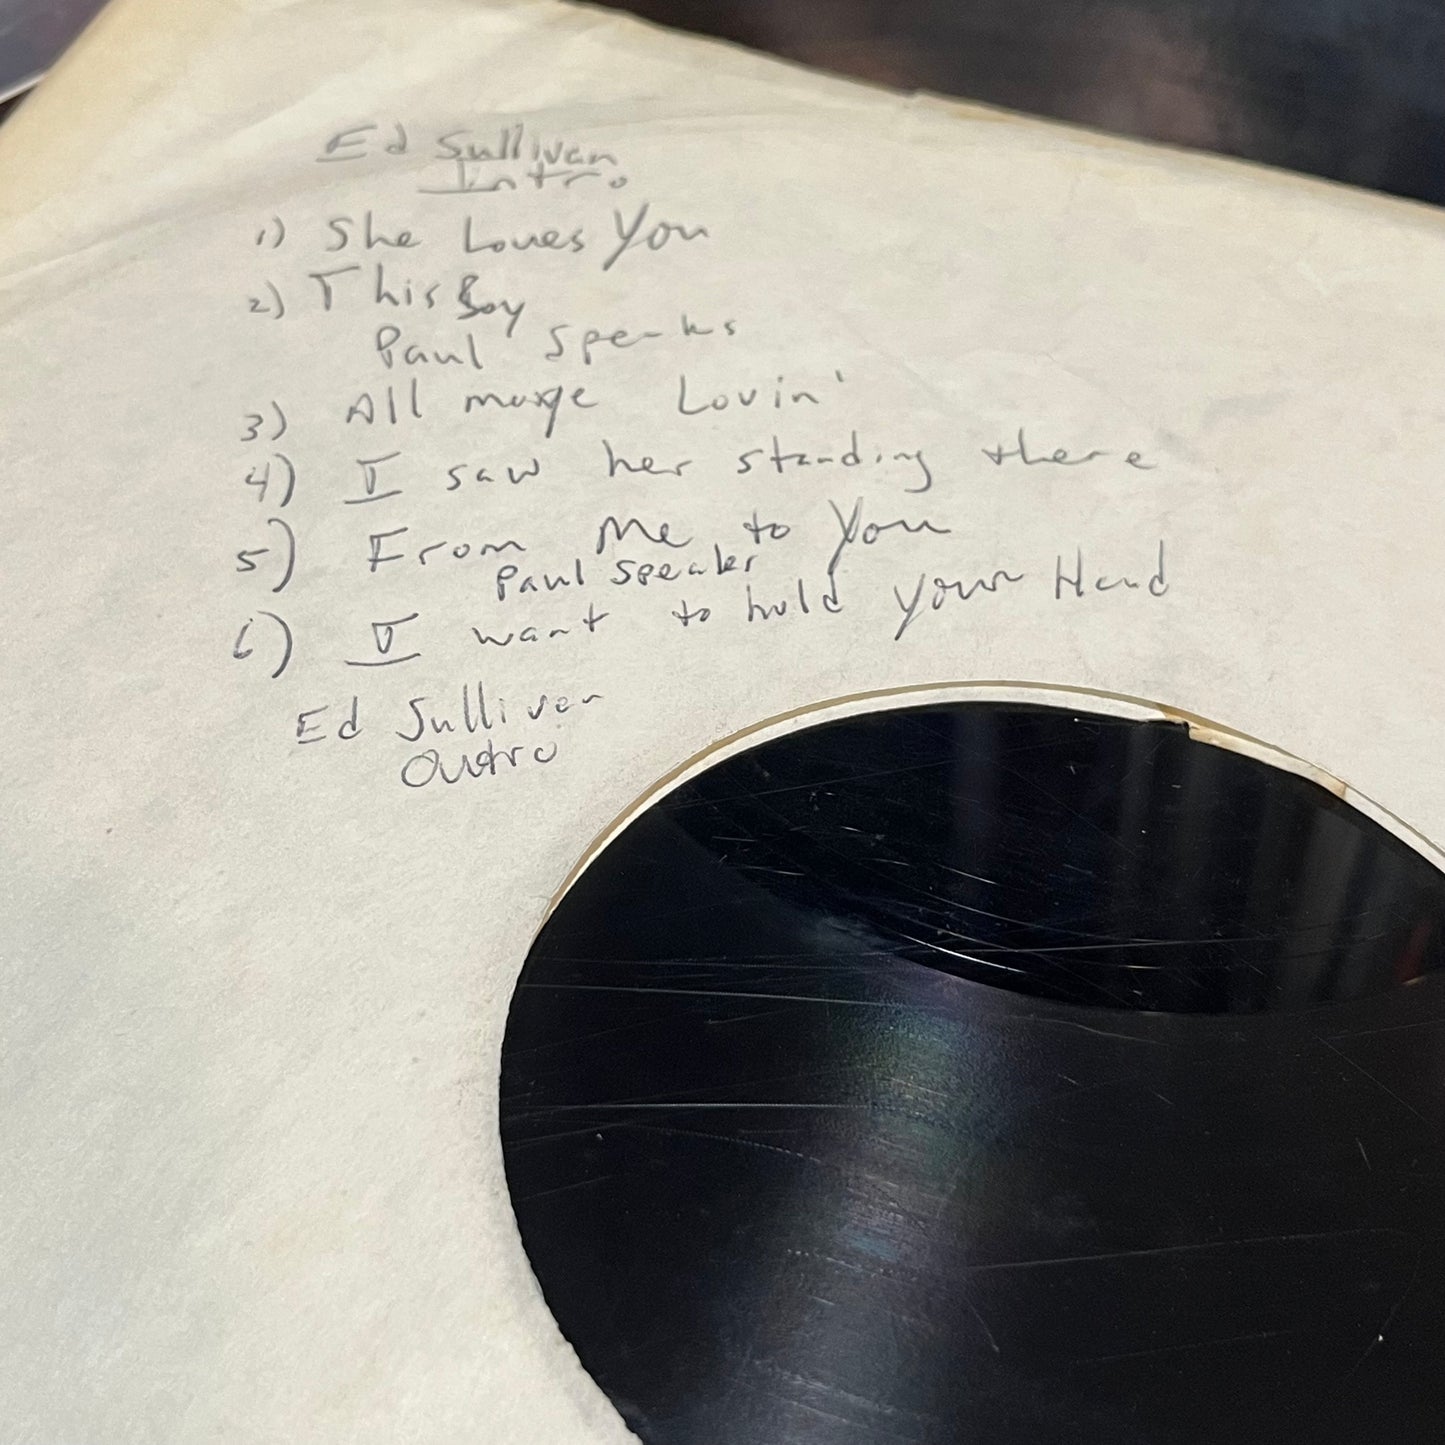 Ed Sullivan
Intro
1) She Loves You
2) This Boy
Paul Speaks
3) All my Lovin'
4) I saw her standing there
5) From Me to You
Paul Speaks
6) I want to hold your Hand
Ed Sullivan
Outro